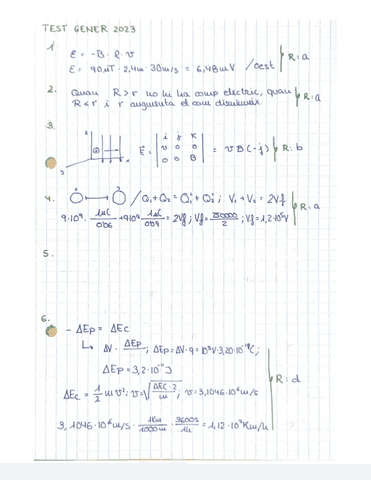 TEST GENER 2023
1.
ε = -B · l · v
ε = 90μT · 2,4m · 30m/s = 6,48mV / oest R: a
2. Quan R>r no hi ha camp electric, quan
R<r i r augmenta el camp disminueix. R: a
3.
E = | i j k | v 0 0 | 0 0 B | = vB(-j) R: b
4. 1 2 / Q₁+Q₂ = Q₁'+Q₂' ; V₁+V₂ = 2Vf R: a
9·10⁹· 1μC / 0,06 + 9·10⁹ 1μC / 0,09 = 2Vf ; Vf = 250000 / 2 ; Vf = 1,2·10⁵V
5.
6.
- ΔEp = ΔEc
ΔV · ΔEp ; ΔEp = ΔV·q =
ΔEp = 3,2·10⁻¹¹J
ΔEc = 1/2 m v² ; v = √ΔEc·2 / m ; v = 3,1046·10⁶m/s R: d
3,1046·10⁶m/s · 1Km / 1000m · 3600s / 1h = 1,12·10⁷Km/h